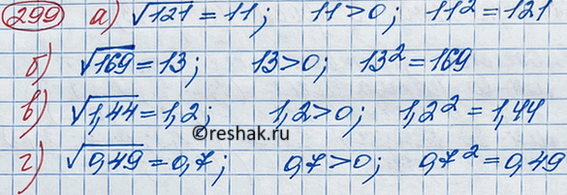 299 а) √121 = 11; 11 > 0; 11² = 121
б) √169 = 13; 13 > 0; 13² = 169
в) √1,44 = 1,2; 1,2 > 0; 1,2² = 1,44
©reshak.ru
г) √0,49 = 0,7; 0,7 > 0; 0,7² = 0,49